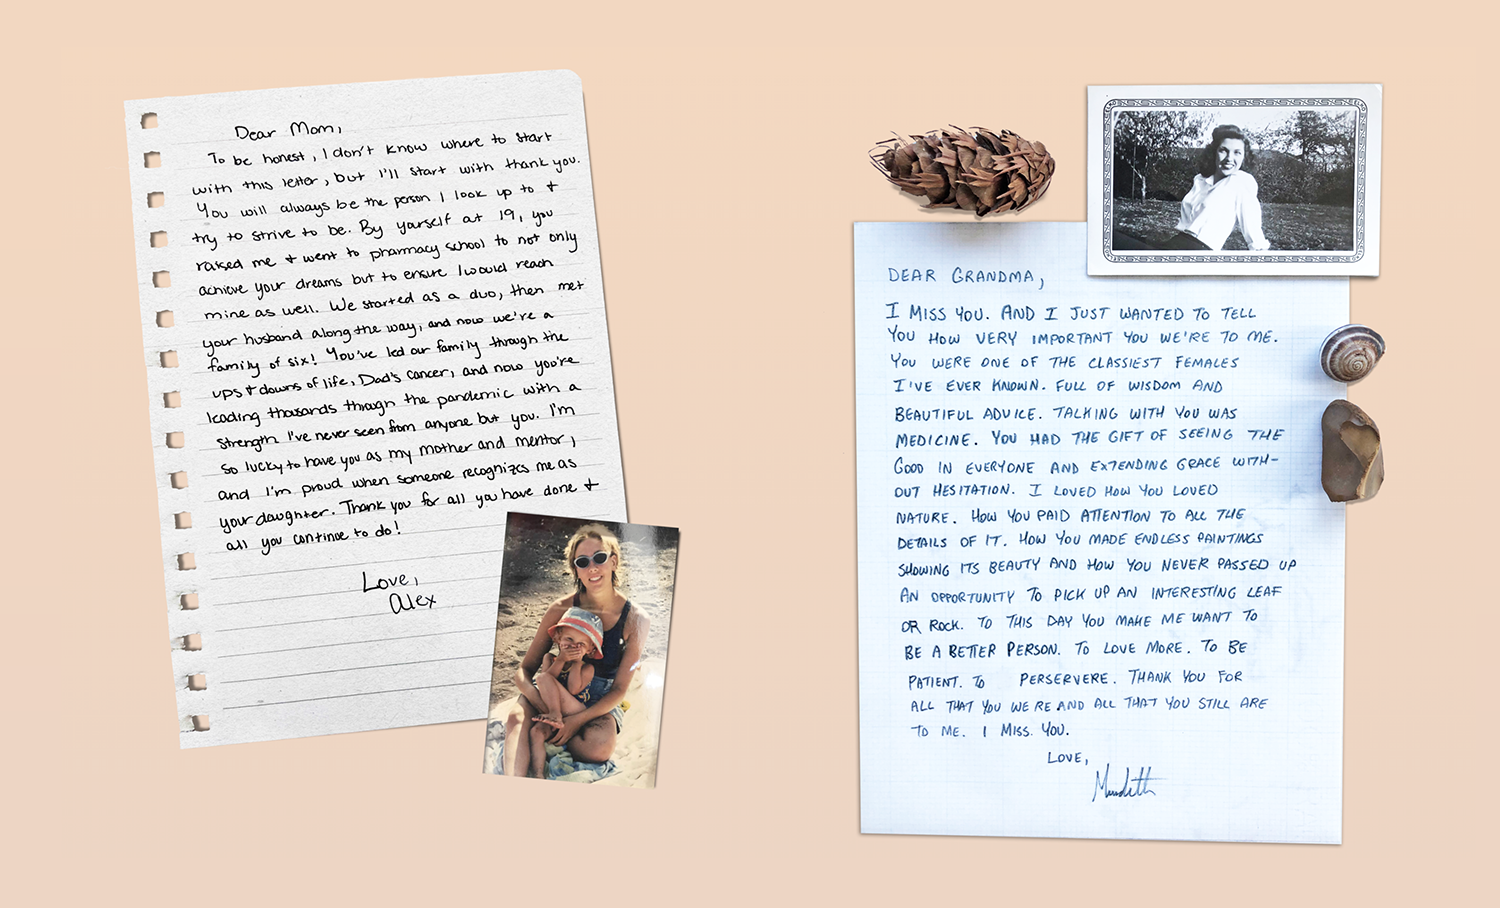 Dear Mom,
To be honest, I don't know where to start
with this letter, but I'll start with thank you.
You will always be the person I look up to &
try to strive to be. By yourself at 19, you
raised me & went to pharmacy school to not only
achieve your dreams but to ensure I would reach
mine as well. We started as a duo, then met
your husband along the way, and now we're a
family of six! You've led our family through the
ups & downs of life, Dad's cancer, and now you're
leading thousands through the pandemic with a
strength I've never seen from anyone but you. I'm
so lucky to have you as my mother and mentor,
and I'm proud when someone recognizes me as
your daughter. Thank you for all you have done &
all you continue to do!
Love,
Alex
DEAR GRANDMA,
I MISS YOU. AND I JUST WANTED TO TELL
YOU HOW VERY IMPORTANT YOU WE'RE TO ME.
YOU WERE ONE OF THE CLASSIEST FEMALES
I'VE EVER KNOWN. FULL OF WISDOM AND
BEAUTIFUL ADVICE. TALKING WITH YOU WAS
MEDICINE. YOU HAD THE GIFT OF SEEING THE
GOOD IN EVERYONE AND EXTENDING GRACE WITH-
OUT HESITATION. I LOVED HOW YOU LOVED
NATURE. HOW YOU PAID ATTENTION TO ALL THE
DETAILS OF IT. HOW YOU MADE ENDLESS PAINTINGS
SHOWING ITS BEAUTY AND HOW YOU NEVER PASSED UP
AN OPPORTUNITY TO PICK UP AN INTERESTING LEAF
OR ROCK. TO THIS DAY YOU MAKE ME WANT TO
BE A BETTER PERSON. TO LOVE MORE. TO BE
PATIENT. TO PERSERVERE. THANK YOU FOR
ALL THAT YOU WE'RE AND ALL THAT YOU STILL ARE
TO ME. I MISS YOU.
LOVE,
Meredith